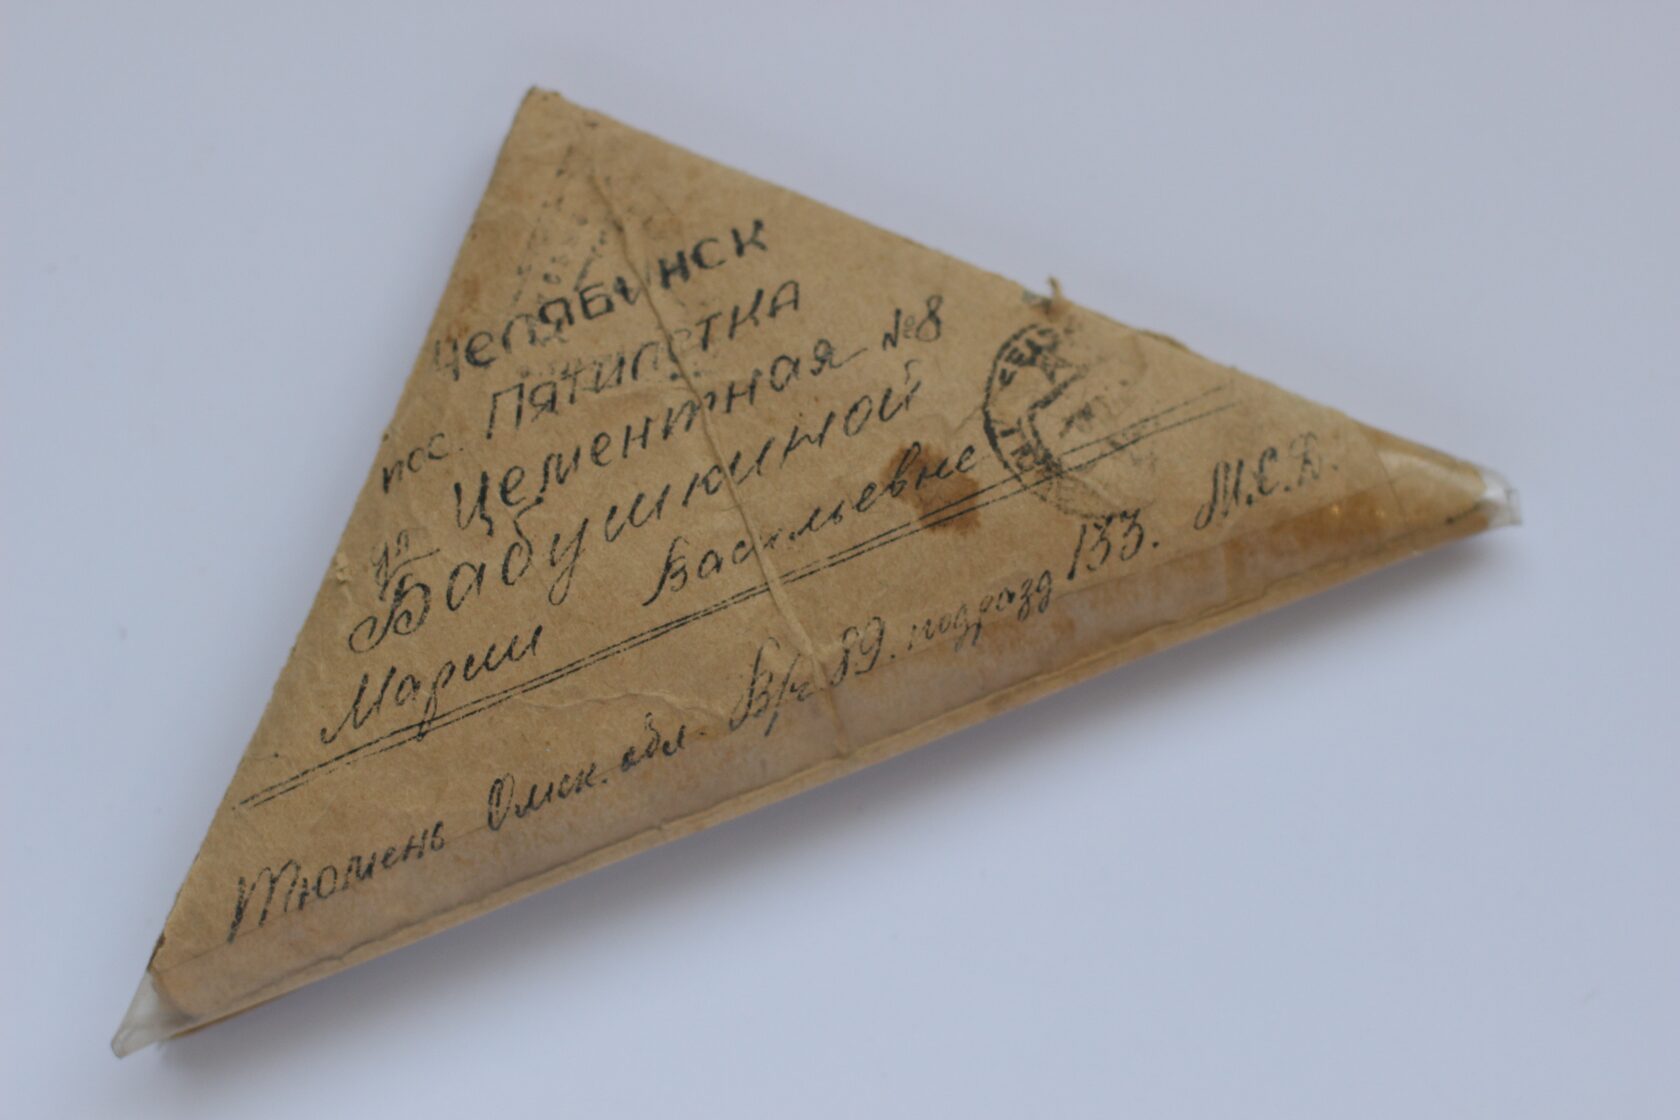 ЧЕЛЯБИНСК
пос. ПЯТИЛЕТКА
ул Цементная №8
Бабушкиной
Марии Васильевне
Тюмень Омск. обл. В/ч 89. подразд 133. М.С.В.